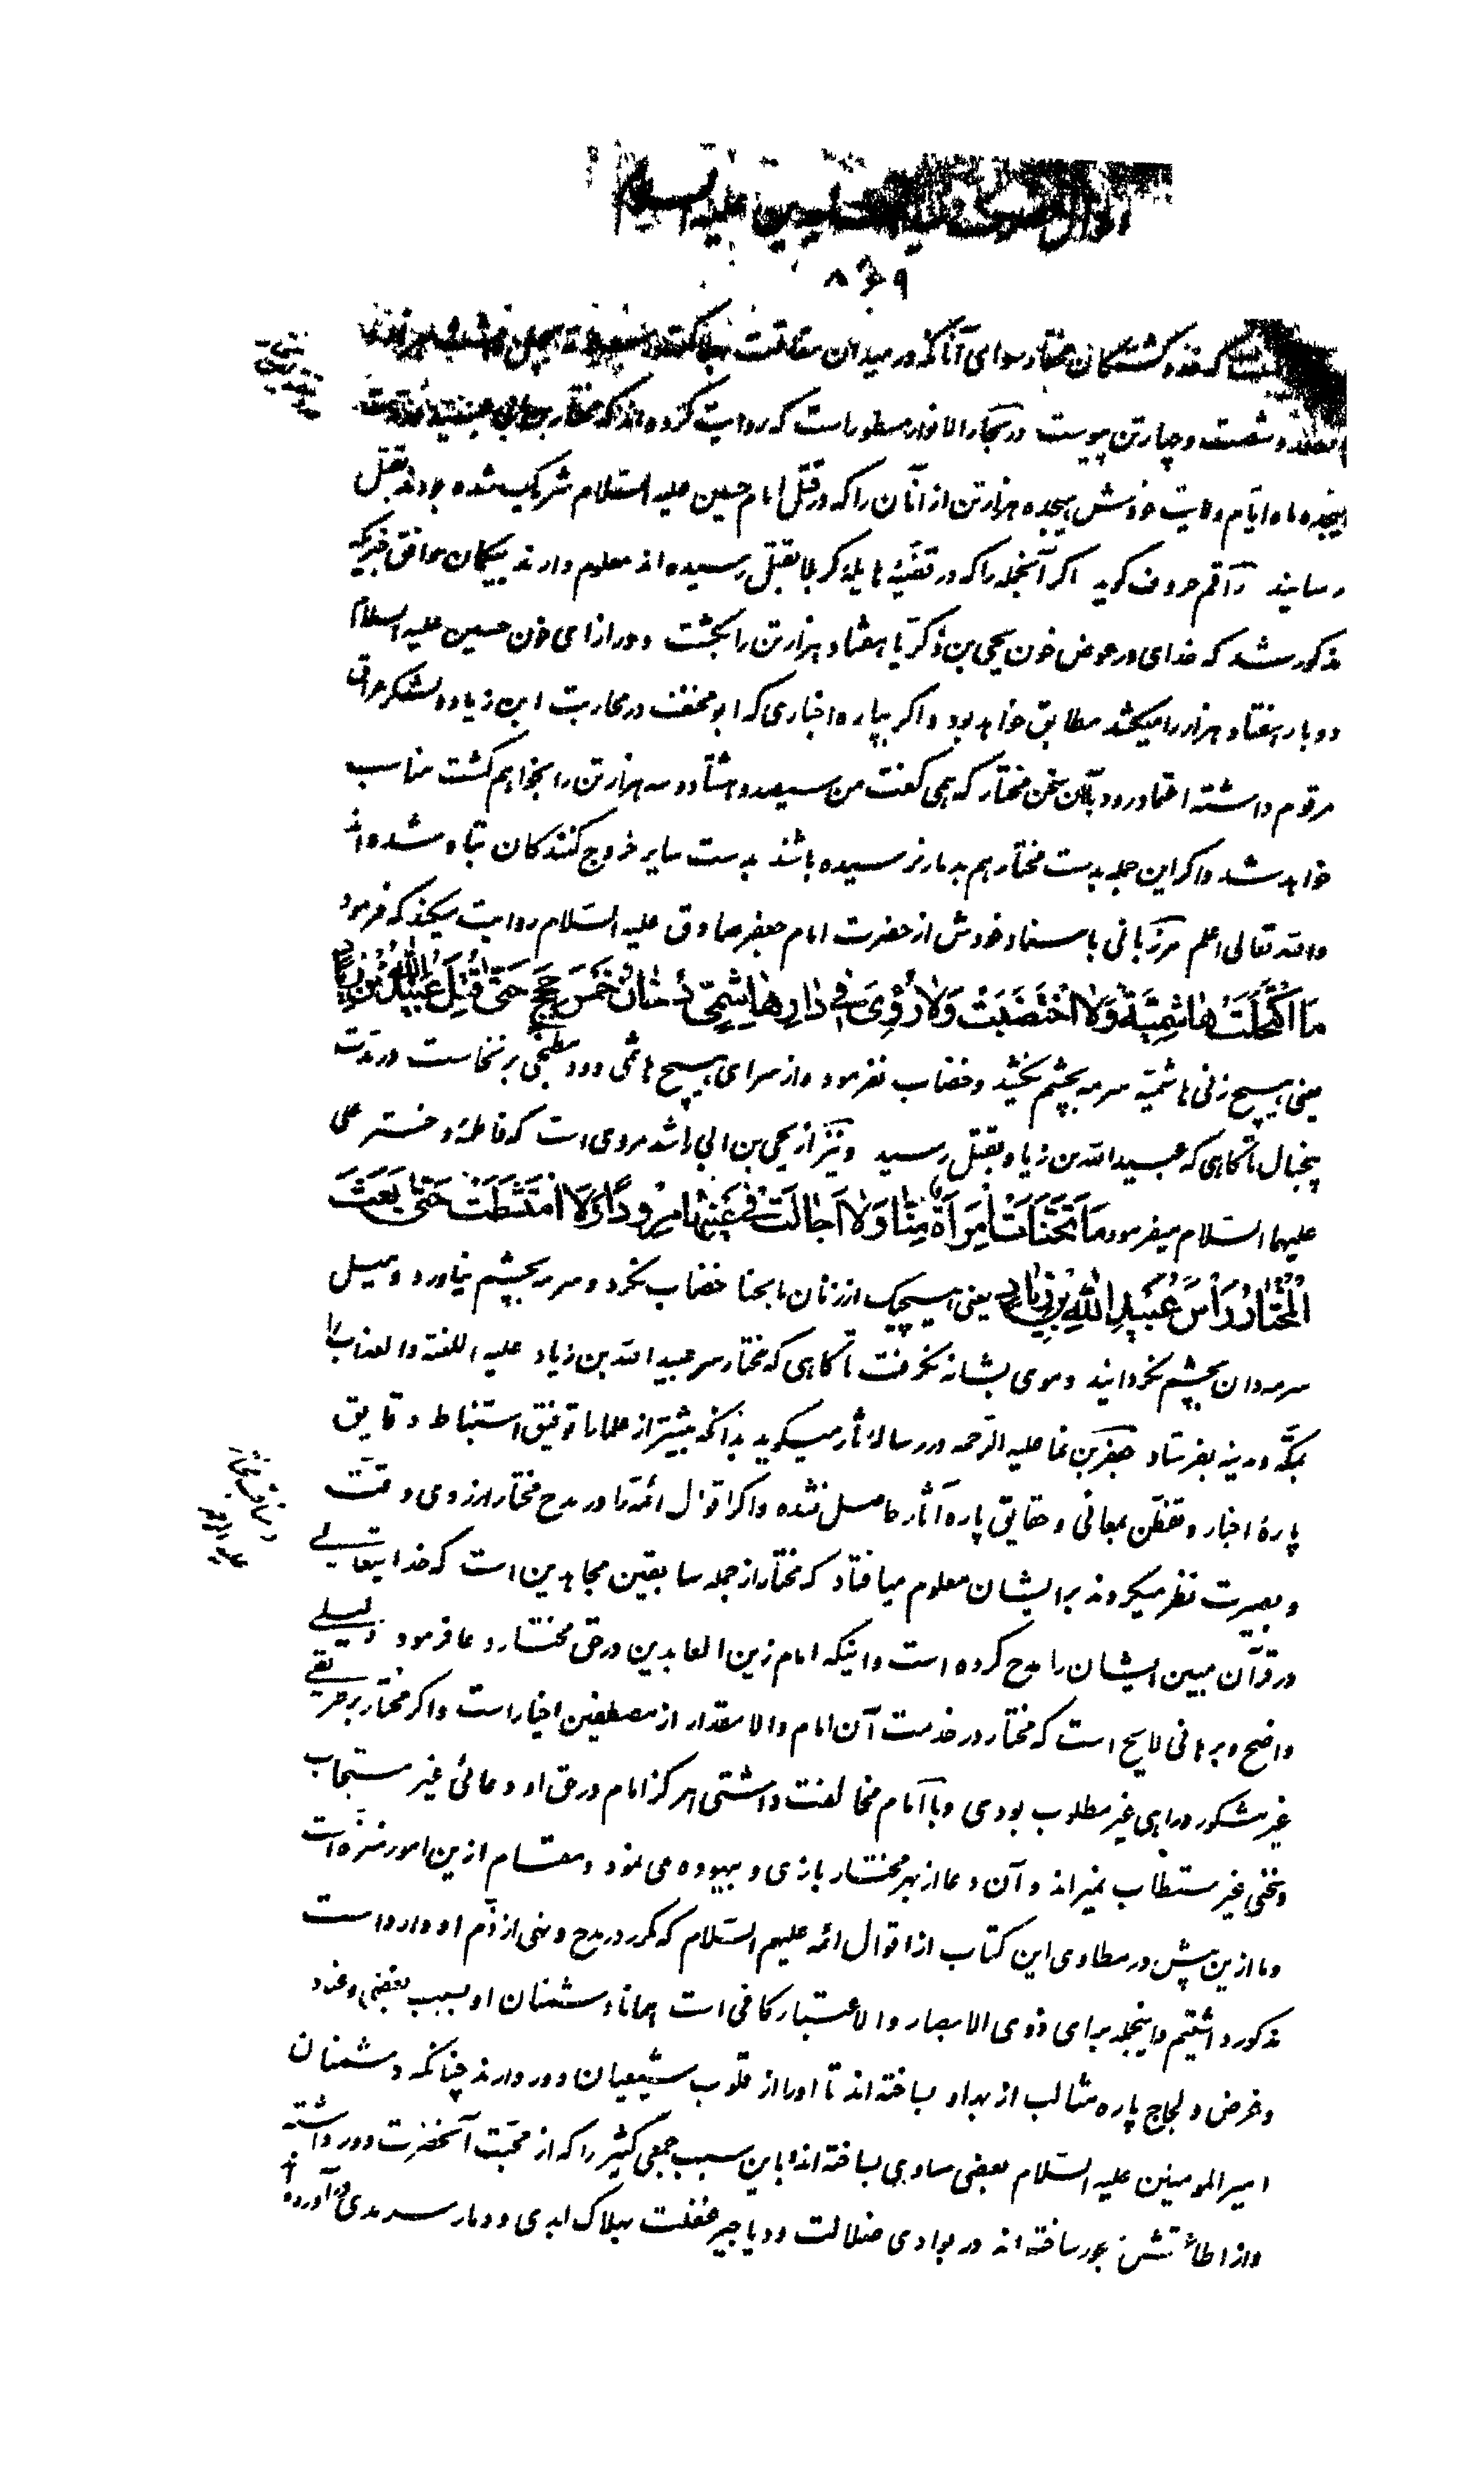 احوال حضرت سید الساجدین علیه السلام
۸۶۹
که عدد کشتگان مختار سوای آنانکه در میدان مقاتلت
و شصت و چهار تن پیوست در بحار الانوار مسطور است که روایت کرده‌اند که مختار بن ابی عبید در مدت
هیجده ماه ایام ولایت خودش هیجده هزار تن از آنان را که در قتل امام حسین علیه السلام شریک شده بودند بقتل
رسانید راقم حروف گوید اگر آنجمله را که در قضیه هایله کربلا بقتل رسیده‌اند معلوم دارند بیگمان موافق خبریکه
مذکور شد که خدای در عوض خون یحیی بن زکریا هفتاد هزار تن را بکشت و در ازای خون حسین علیه السلام
دو بار هفتاد هزار را میکشد مطابق خواهد بود و اگر بپاره اخباری که ابو مخنف در محاربت ابن زیاد و لشکر عراق
مرقوم داشته اعتماد رود بآن سخن مختار که همی گفت من سیصد و هشتاد و سه هزار تن را بخواهم کشت مناسب
خواهد شد و اگر این جمله بدست مختار هم بدمار نرسیده باشند بدست سایر خروج کنندگان تباه شده‌اند
والله تعالی اعلم مرزبانی باسناد خودش از حضرت امام جعفر صادق علیه السلام روایت میکند که فرمود
مَا اكْتَحَلَتْ هَاشِمِيَّةٌ وَلَا اخْتَضَبَتْ وَلَا رُؤِيَ فِي دَارِ هَاشِمِيٍّ دُخَانٌ خَمْسَ حِجَجٍ حَتّى قُتِلَ عُبَيْدُ اللهِ بْنُ زِيَادٍ
یعنی هیچ زنی هاشمیه سرمه بچشم نکشید و خضاب نفرمود و از سرای هیچ هاشمی دود مطبخی برنخاست در مدت
پنجسال تا گاهی که عبیدالله بن زیاد بقتل رسید و نیز از یحیی بن ابی راشد مروی است که فاطمه دختر علی
علیهما السلام میفرمود مَا تَحَنَّأَتْ اِمْرَأَةٌ مِنَّا وَلَا اَجَالَتْ فِي عَيْنِهَا مِرْوَدًا وَلَا امْتَشَطَتْ حَتّى بَعَثَ
الْمُخْتَارُ رَأْسَ عُبَيْدِ اللهِ بْنِ زِيَادٍ یعنی هیچیک از زنان ما بحنا خضاب نکرد و سرمه بچشم نیاورد و میل
سرمه‌دان بچشم نگردانید و موی بشانه نگرفت تا گاهی که مختار سر عبیدالله بن زیاد علیه اللعنة والعذاب را
بمکه و مدینه بفرستاد جعفر بن نما علیه الرحمه در رساله ثار میگوید بدانکه بیشتر از علما ما توفیق استنباط دقایق
پارهٔ اخبار و تفطن بمعانی و حقایق پاره آثار حاصل نشده و اگر اقوال ائمه را در مدح مختار از روی دقت
و بصیرت نظر میکردند برایشان معلوم میافتاد که مختار از جمله سابقین مجاهدین است که خدا یتعالی
در قرآن مبین ایشان را مدح کرده است و اینکه امام زین العابدین در حق مختار دعا فرمود دلیلی
واضح و برهانی لایح است که مختار در خدمت آن امام والا مقدار از مصطفین اخیار است و اگر مختار بر طریقی
غیر مشکور و راهی غیر مطلوب بودی و با امام مخالفت داشتی هرگز امام در حق او دعائی غیر مستجاب
و سخنی غیر مستطاب نمیراند و آن دعا از بهر مختار بازی و بیهوده می‌نمود و مقام امام ازین امور منزه است
و ما ازین پیش در مطاوی این کتاب از اقوال ائمه علیهم السلام که مکرر در مدح و نهی از ذم او وارد است
مذکور داشتیم و اینجمله برای ذوی الابصار و الاعتبار کافی است همانا دشمنان او بسبب بغض و عناد
و غرض و لجاج پاره مثالب از بهر او بساخته‌اند تا او را از قلوب شیعیان دور دارند چنانکه دشمنان
امیر المومنین علیه السلام بعضی مساوی بساخته‌اند و باین سبب جمعی کثیر را که از محبت آنحضرت دور داشته
و از اطاعتش بدور ساخته‌اند در بوادی ضلالت و دیاجیر غفلت بهلاک ابدی و دمار سرمدی در آورده‌اند